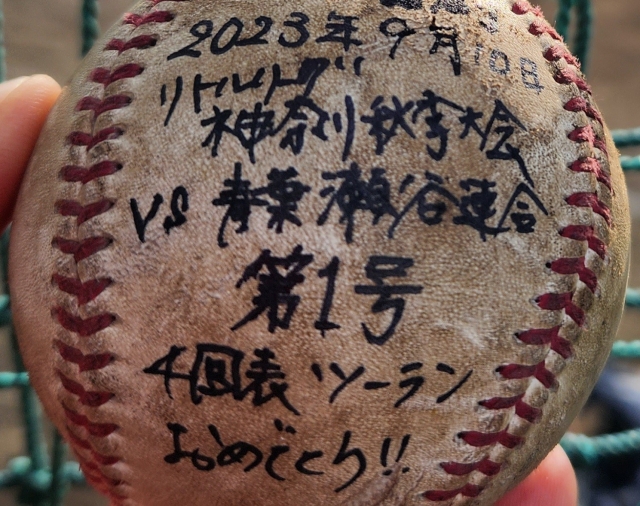 2023年9月10日
リトルリーグ
神奈川秋季大会
VS 青葉瀬谷連合
第1号
4回表 ソーラン
おめでとう!!